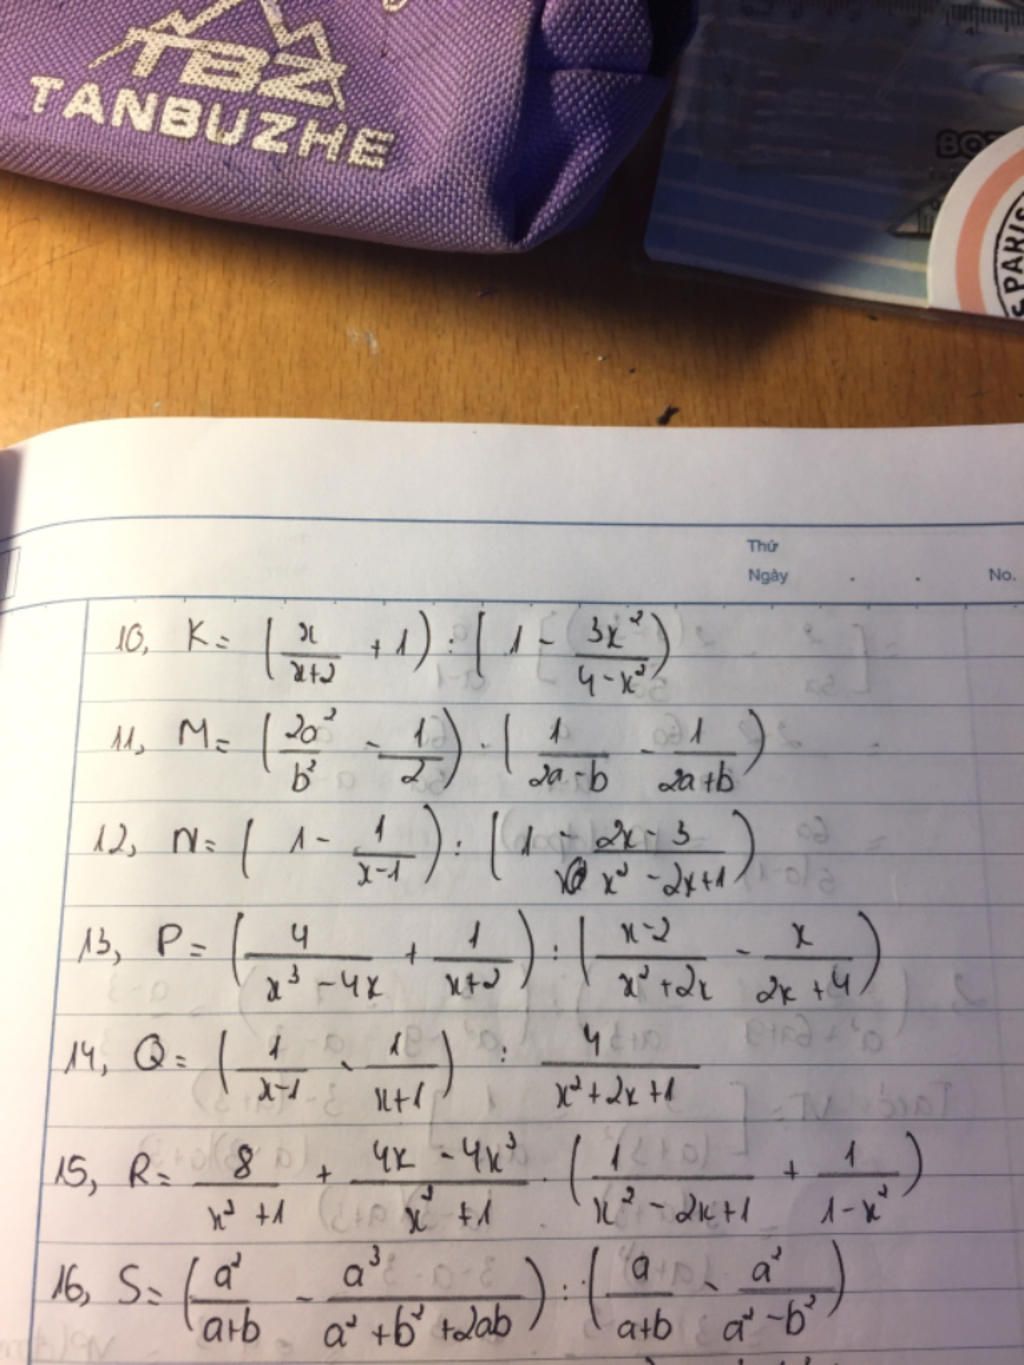 TBZ
TANBUZHE
PARIS
Thứ
Ngày . . No.
10, K = (x/(x+2) + 1) : (1 - 3x²/(4-x²))
11, M = (2a²/b² - 1/2) . (1/(2a-b) - 1/(2a+b))
12, N = (1 - 1/(x-1)) : (1 - (2x-3)/(x²-2x+1))
13, P = (4/(x³-4x) + 1/(x+2)) : ((x-2)/(x²+2x) - x/(2x+4))
14, Q = (1/(x-1) - 1/(x+1)) : 4/(x²+2x+1)
15, R = 8/(x²+1) + (4x-4x³)/(x²+1) . (1/(x²-2x+1) + 1/(1-x²))
16, S = (a²/(a+b) - a³/(a²+b²+2ab)) : (a/(a+b) - a²/(a²-b²))